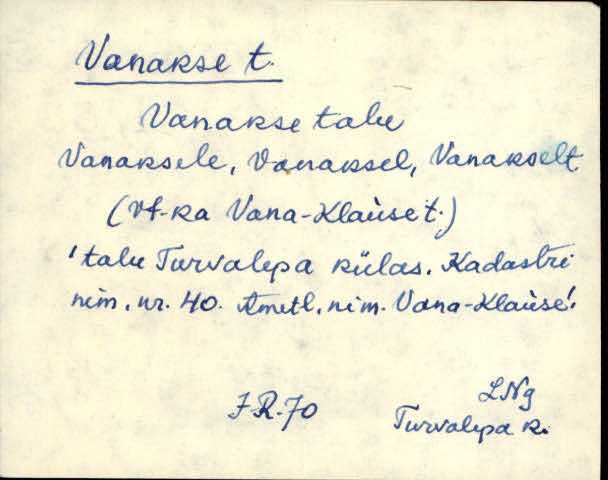 Vanakse t.
Vanakse talu
Vanaksele, Vanaksel, Vanakselt
(vt-ka Vana-Klaùse t.)
'talu Turvalepa külas. Kadastri
nim. nr. 40. Ametl. nim. Vana-Klaùse'.
J.R.70
LNg
Turvalepa k.